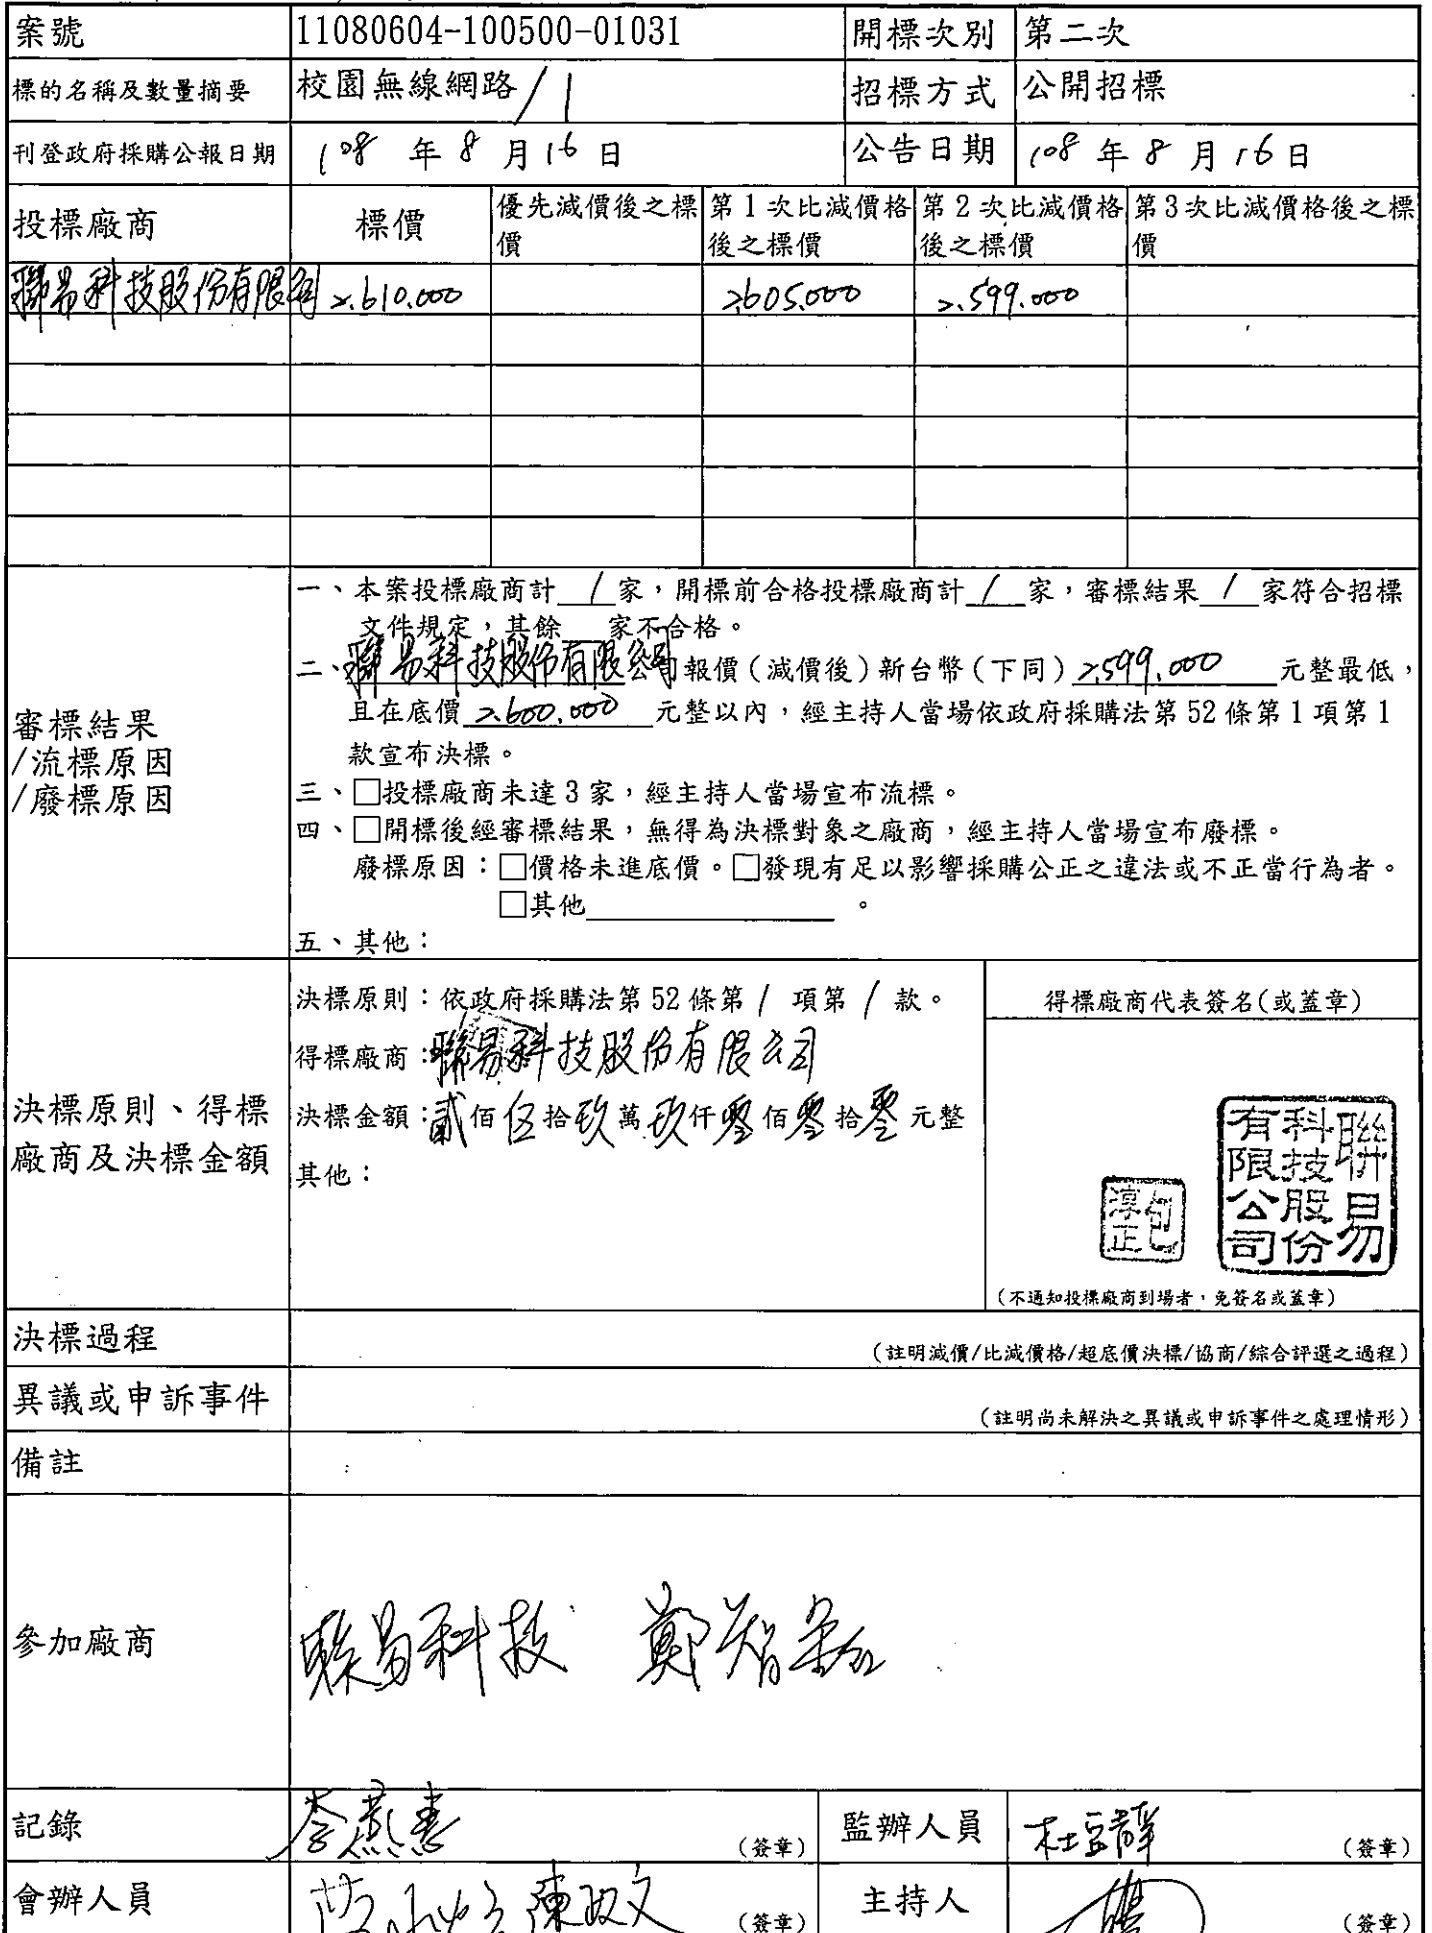 案號 11080604-100500-01031 開標次別 第二次
標的名稱及數量摘要 校園無線網路/1 招標方式 公開招標
刊登政府採購公報日期 108 年 8 月 16 日 公告日期 108 年 8 月 16 日
投標廠商 標價 優先減價後之標價 第1次比減價格後之標價 第2次比減價格後之標價 第3次比減價格後之標價
聯易科技股份有限公司 2.610.000 2605.000 2.599.000
審標結果
/流標原因
/廢標原因
一、本案投標廠商計 1 家，開標前合格投標廠商計 1 家，審標結果 1 家符合招標
文件規定，其餘 家不合格。
二、聯易科技股份有限公司報價(減價後)新台幣(下同) 2,599,000 元整最低，
且在底價 2.600.000 元整以內，經主持人當場依政府採購法第52條第1項第1
款宣布決標。
三、□投標廠商未達3家，經主持人當場宣布流標。
四、□開標後經審標結果，無得為決標對象之廠商，經主持人當場宣布廢標。
廢標原因：□價格未進底價。□發現有足以影響採購公正之違法或不正當行為者。
□其他 。
五、其他：
決標原則、得標
廠商及決標金額
決標原則：依政府採購法第52條第 1 項第 1 款。
得標廠商：聯易科技股份有限公司
決標金額：貳佰伍拾玖萬玖仟零佰零拾零元整
其他：
得標廠商代表簽名(或蓋章)
聯易
科技股份
有限公司
包
淳正
(不通知投標廠商到場者，免簽名或蓋章)
決標過程 (註明減價/比減價格/超底價決標/協商/綜合評選之過程)
異議或申訴事件 (註明尚未解決之異議或申訴事件之處理情形)
備註
參加廠商 聯易科技 鄭智
記錄 李燕惠 (簽章) 監辦人員 (簽章)
會辦人員 陳政文 (簽章) 主持人 (簽章)